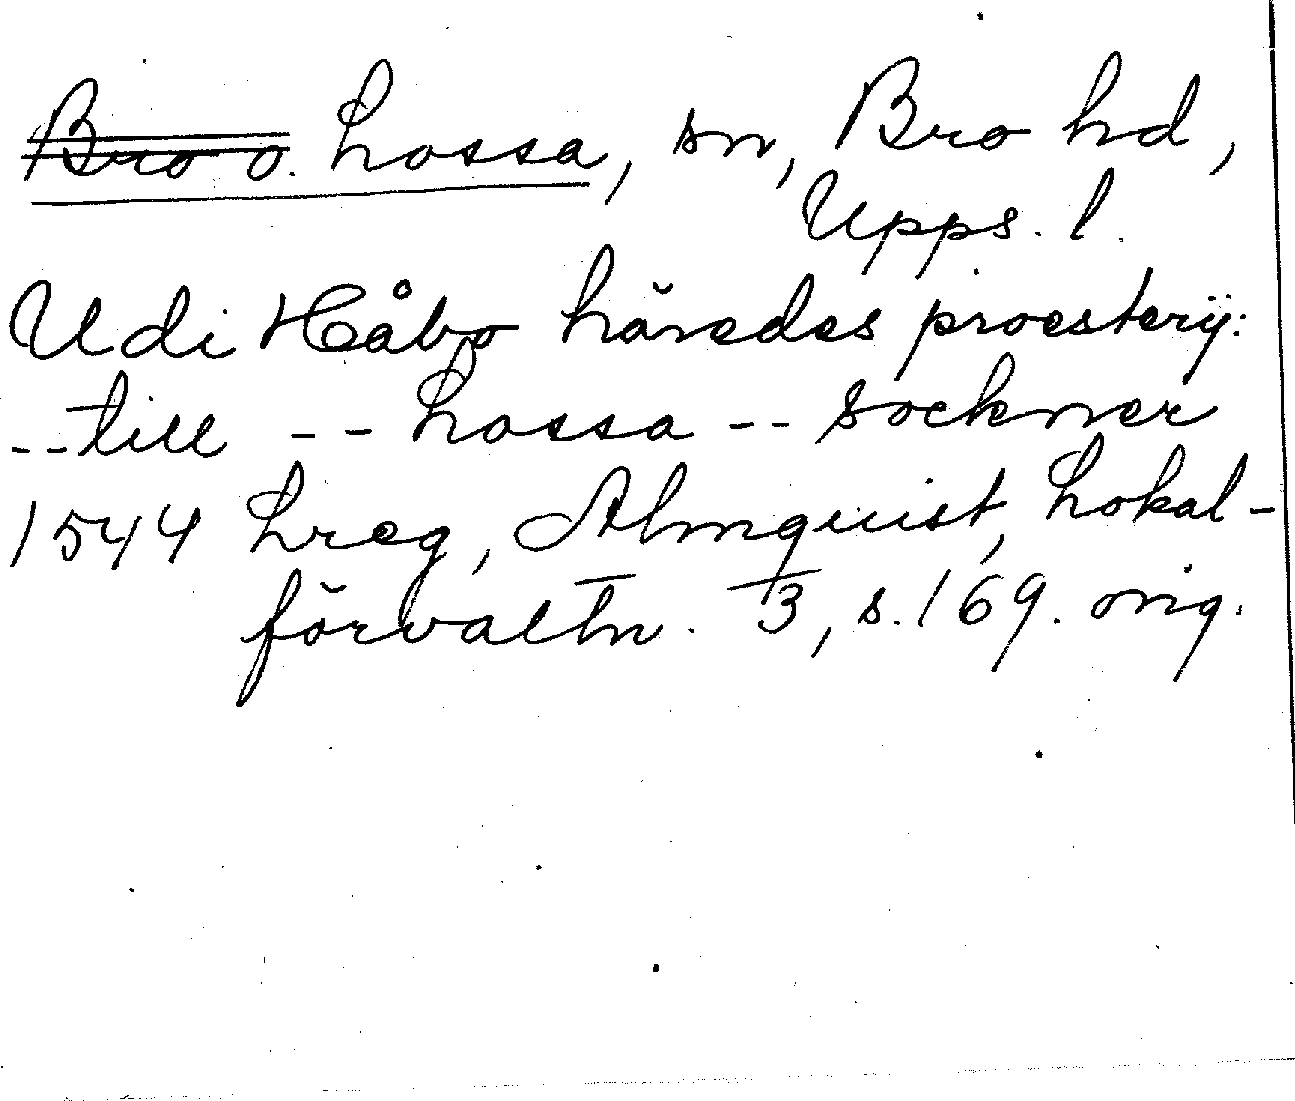 Bro o. Lossa, sn, Bro hd,
Upps. l.
Udi Håbo häredes proesterij:
-- till -- Lossa -- sockner
1544 Lreg, Almquist, Lokal-
förvaltn. I3, s. 169. orig.